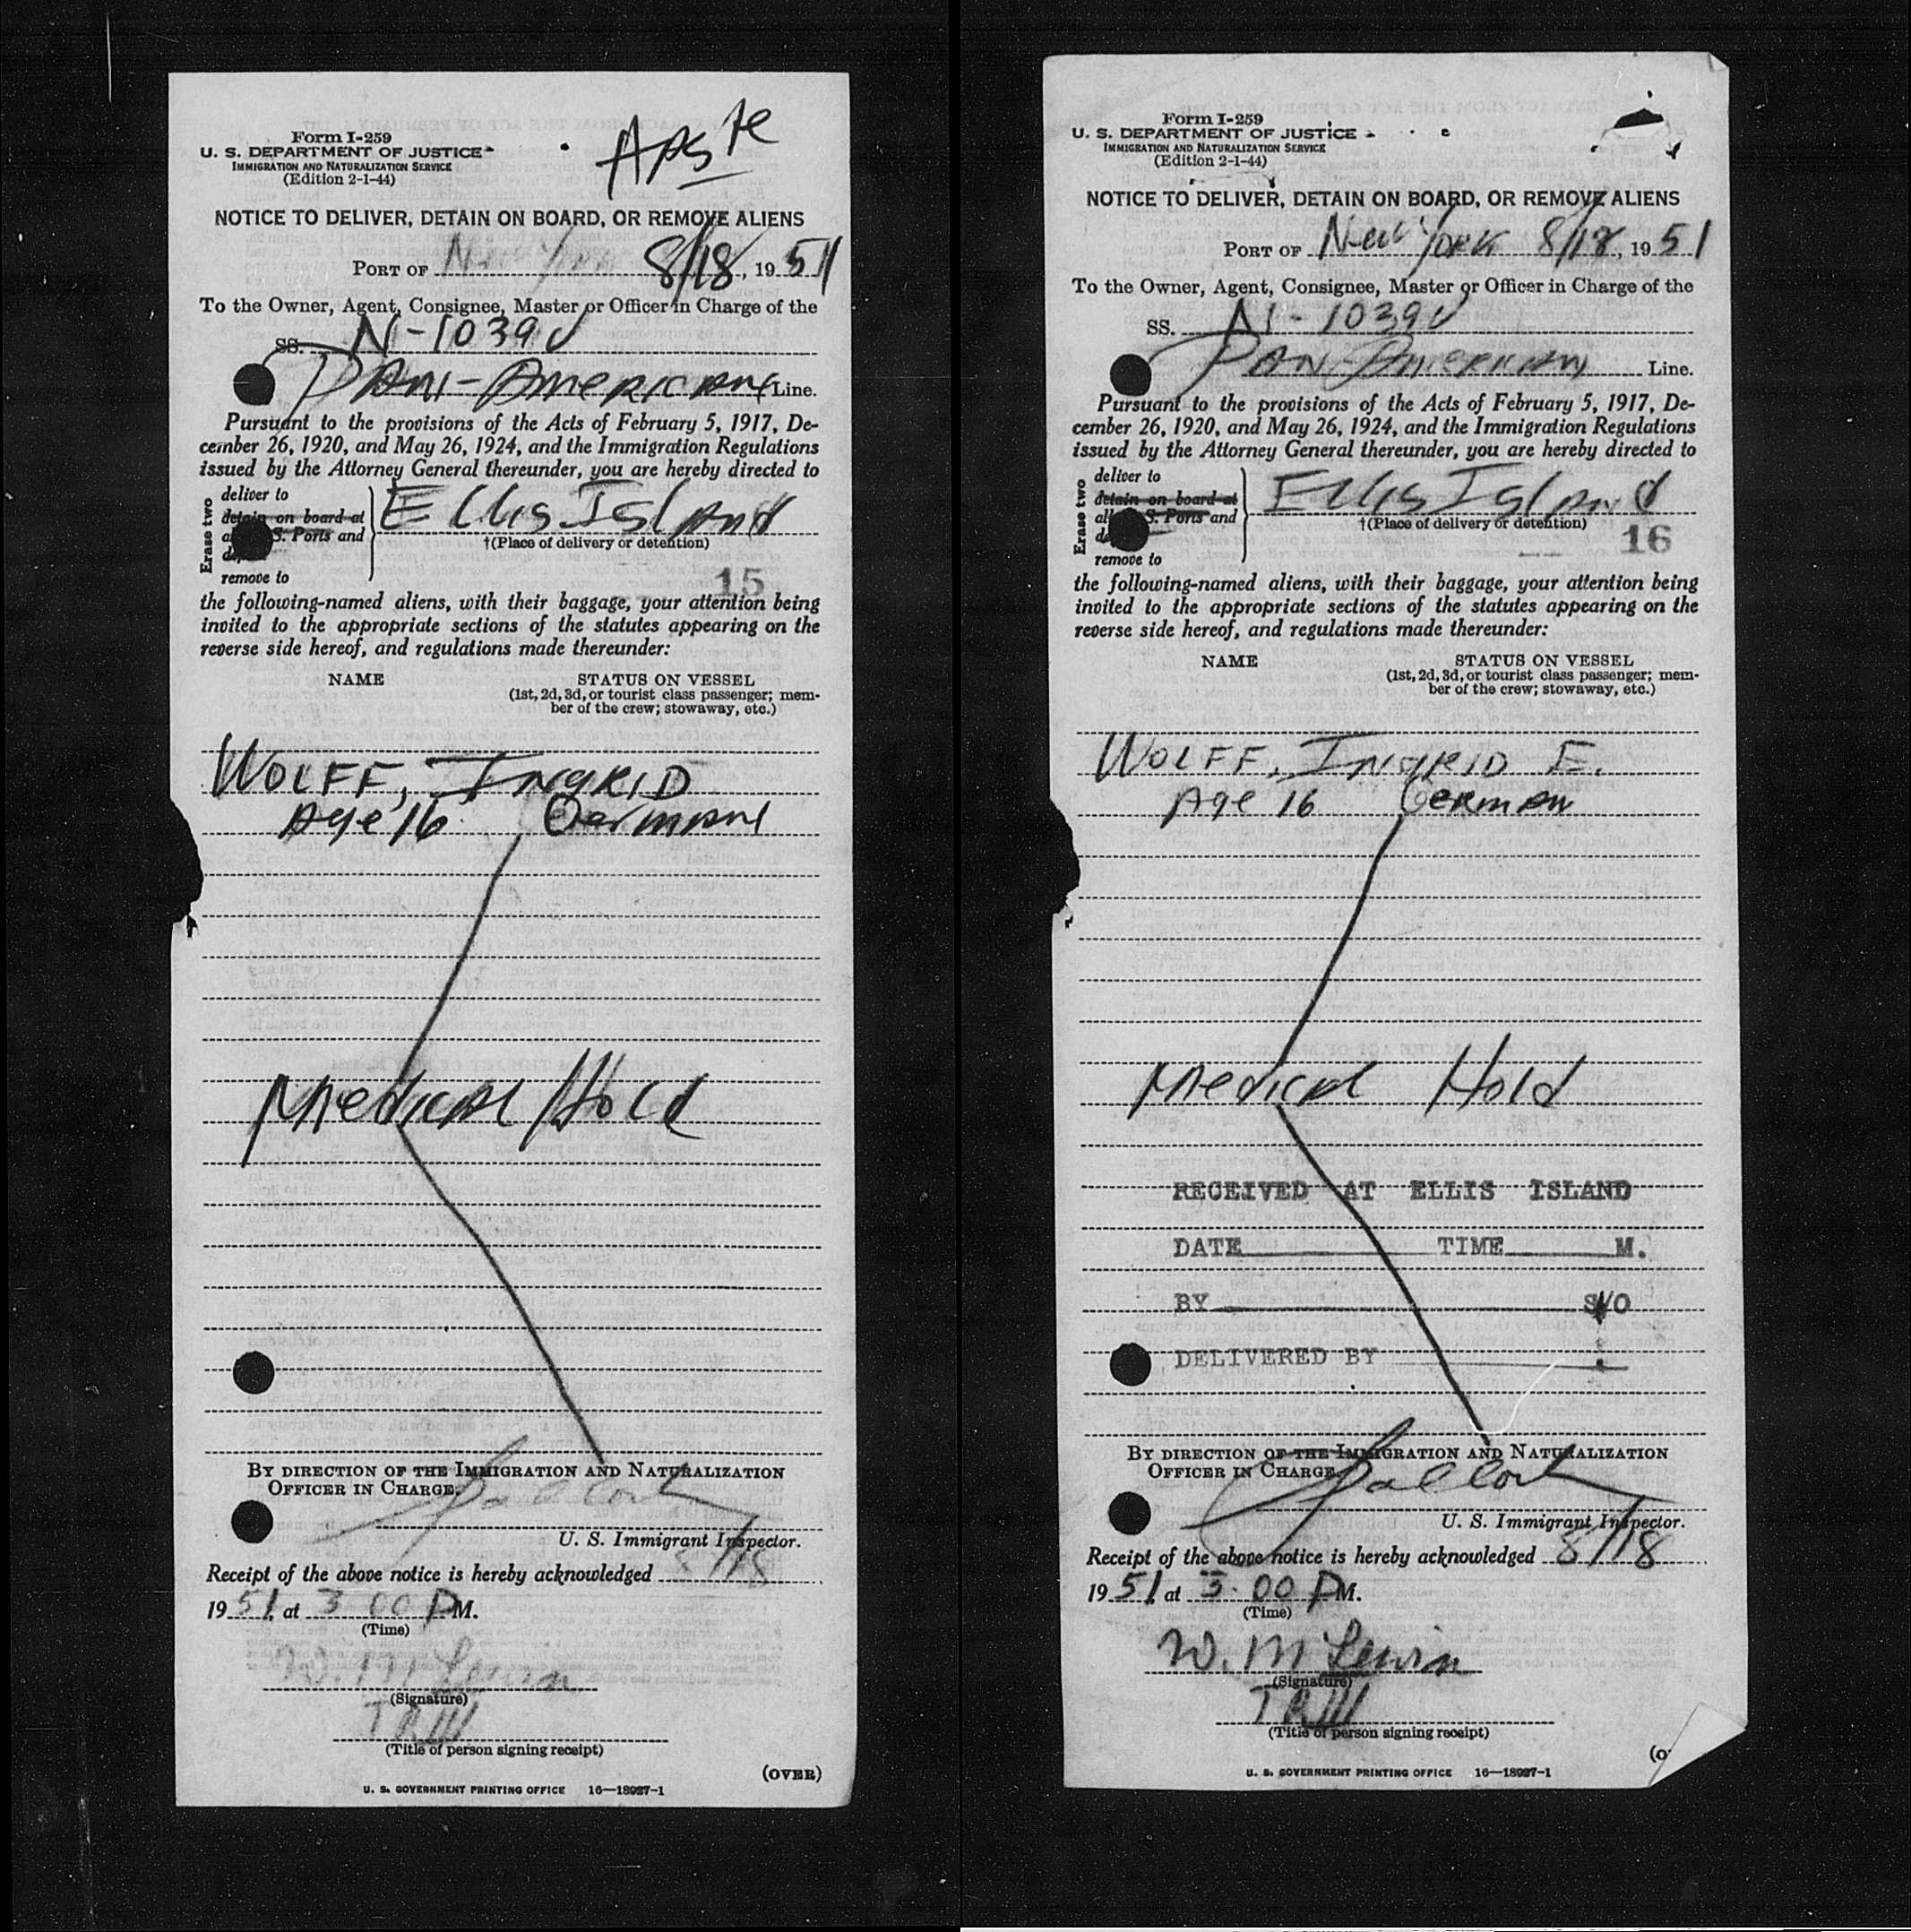 Form I-259
U. S. DEPARTMENT OF JUSTICE
IMMIGRATION AND NATURALIZATION SERVICE
(Edition 2-1-44)
NOTICE TO DELIVER, DETAIN ON BOARD, OR REMOVE ALIENS
PORT OF New York 8/18, 1951
To the Owner, Agent, Consignee, Master or Officer in Charge of the
SS. N-1039V
PAN-AMERICAN Line.
Pursuant to the provisions of the Acts of February 5, 1917, De-
cember 26, 1920, and May 26, 1924, and the Immigration Regulations
issued by the Attorney General thereunder, you are hereby directed to
Erase two
deliver to
detain on board at
S. Ports and
remove to
Ellis Island
†(Place of delivery or detention)
15
the following-named aliens, with their baggage, your attention being
invited to the appropriate sections of the statutes appearing on the
reverse side hereof, and regulations made thereunder:
NAME STATUS ON VESSEL
(1st, 2d, 3d, or tourist class passenger; mem-
ber of the crew; stowaway, etc.)
WOLFF, INGRID
Age 16 German
Medical Hold
BY DIRECTION OF THE IMMIGRATION AND NATURALIZATION
OFFICER IN CHARGE.
U. S. Immigrant Inspector.
Receipt of the above notice is hereby acknowledged 8/18
1951, at 3 00 P M.
(Time)
W. M Lewin
(Signature)
(Title of person signing receipt)
(OVER)
U. S. GOVERNMENT PRINTING OFFICE 16—18927-1
Form I-259
U. S. DEPARTMENT OF JUSTICE
IMMIGRATION AND NATURALIZATION SERVICE
(Edition 2-1-44)
NOTICE TO DELIVER, DETAIN ON BOARD, OR REMOVE ALIENS
PORT OF New York 8/18, 1951
To the Owner, Agent, Consignee, Master or Officer in Charge of the
SS. N-1039V
PAN-AMERICAN Line.
Pursuant to the provisions of the Acts of February 5, 1917, De-
cember 26, 1920, and May 26, 1924, and the Immigration Regulations
issued by the Attorney General thereunder, you are hereby directed to
Erase two
deliver to
detain on board at
S. Ports and
remove to
Ellis Island
†(Place of delivery or detention)
16
the following-named aliens, with their baggage, your attention being
invited to the appropriate sections of the statutes appearing on the
reverse side hereof, and regulations made thereunder:
NAME STATUS ON VESSEL
(1st, 2d, 3d, or tourist class passenger; mem-
ber of the crew; stowaway, etc.)
WOLFF, INGRID E.
Age 16 German
Medical Hold
RECEIVED AT ELLIS ISLAND
DATE TIME M.
BY
DELIVERED BY
BY DIRECTION OF THE IMMIGRATION AND NATURALIZATION
OFFICER IN CHARGE.
U. S. Immigrant Inspector.
Receipt of the above notice is hereby acknowledged 8/18
1951, at 3 00 P M.
(Time)
W. M Lewin
(Signature)
(Title of person signing receipt)
U. S. GOVERNMENT PRINTING OFFICE 16—18927-1